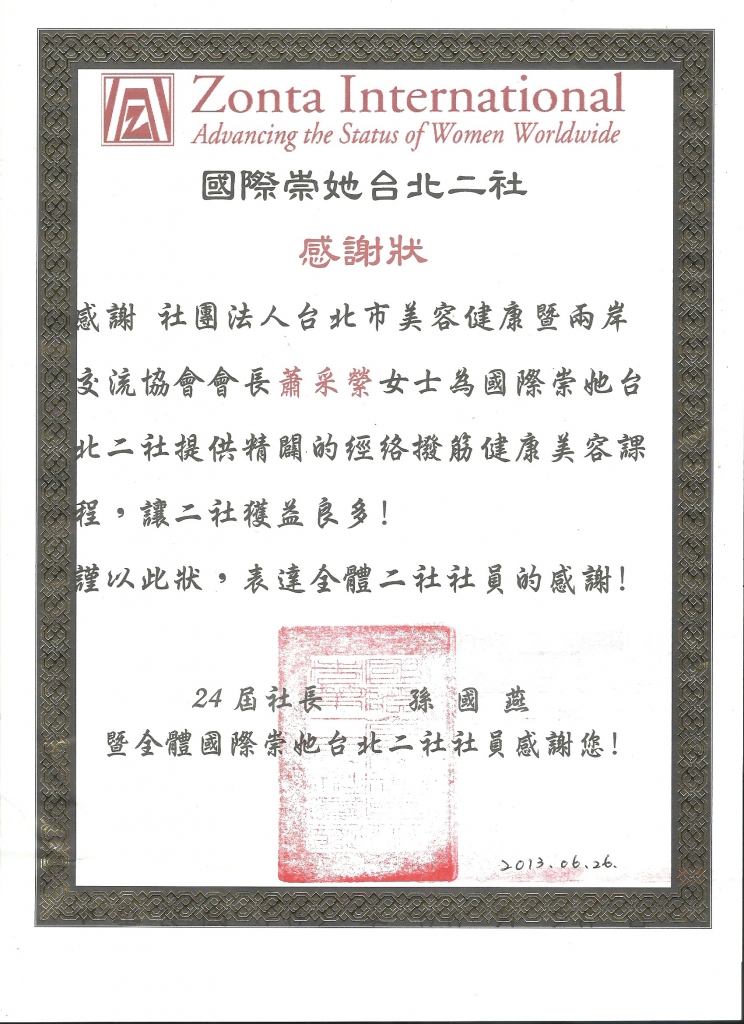 Zonta International
Advancing the Status of Women Worldwide
國際崇她台北二社
感謝狀
感謝 社團法人台北市美容健康暨兩岸
交流協會會長蕭采縈女士為國際崇她台
北二社提供精闢的經絡撥筋健康美容課
程，讓二社獲益良多!
謹以此狀，表達全體二社社員的感謝!
24 屆社長 孫 國 燕
暨全體國際崇她台北二社社員感謝您!
2013.06.26.